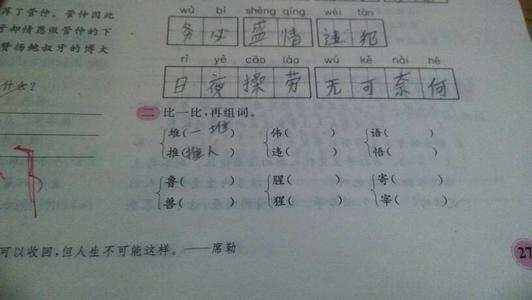 浑了管仲。管仲因此
才却情愿做管仲的下
赞扬鲍叔牙的博大
什么?
wù bì shèng qíng wéi fàn
务必 盛情 违犯
rì yè cāo láo wú kě nài hé
日夜操劳 无可奈何
二 比一比,再组词。
堆(一堆) 伟( ) 语( )
推(推人) 违( ) 悟( )
鲁( ) 腥( ) 寄( )
兽( ) 猩( ) 宰( )
可以收回,但人生不可能这样。——席勒
27